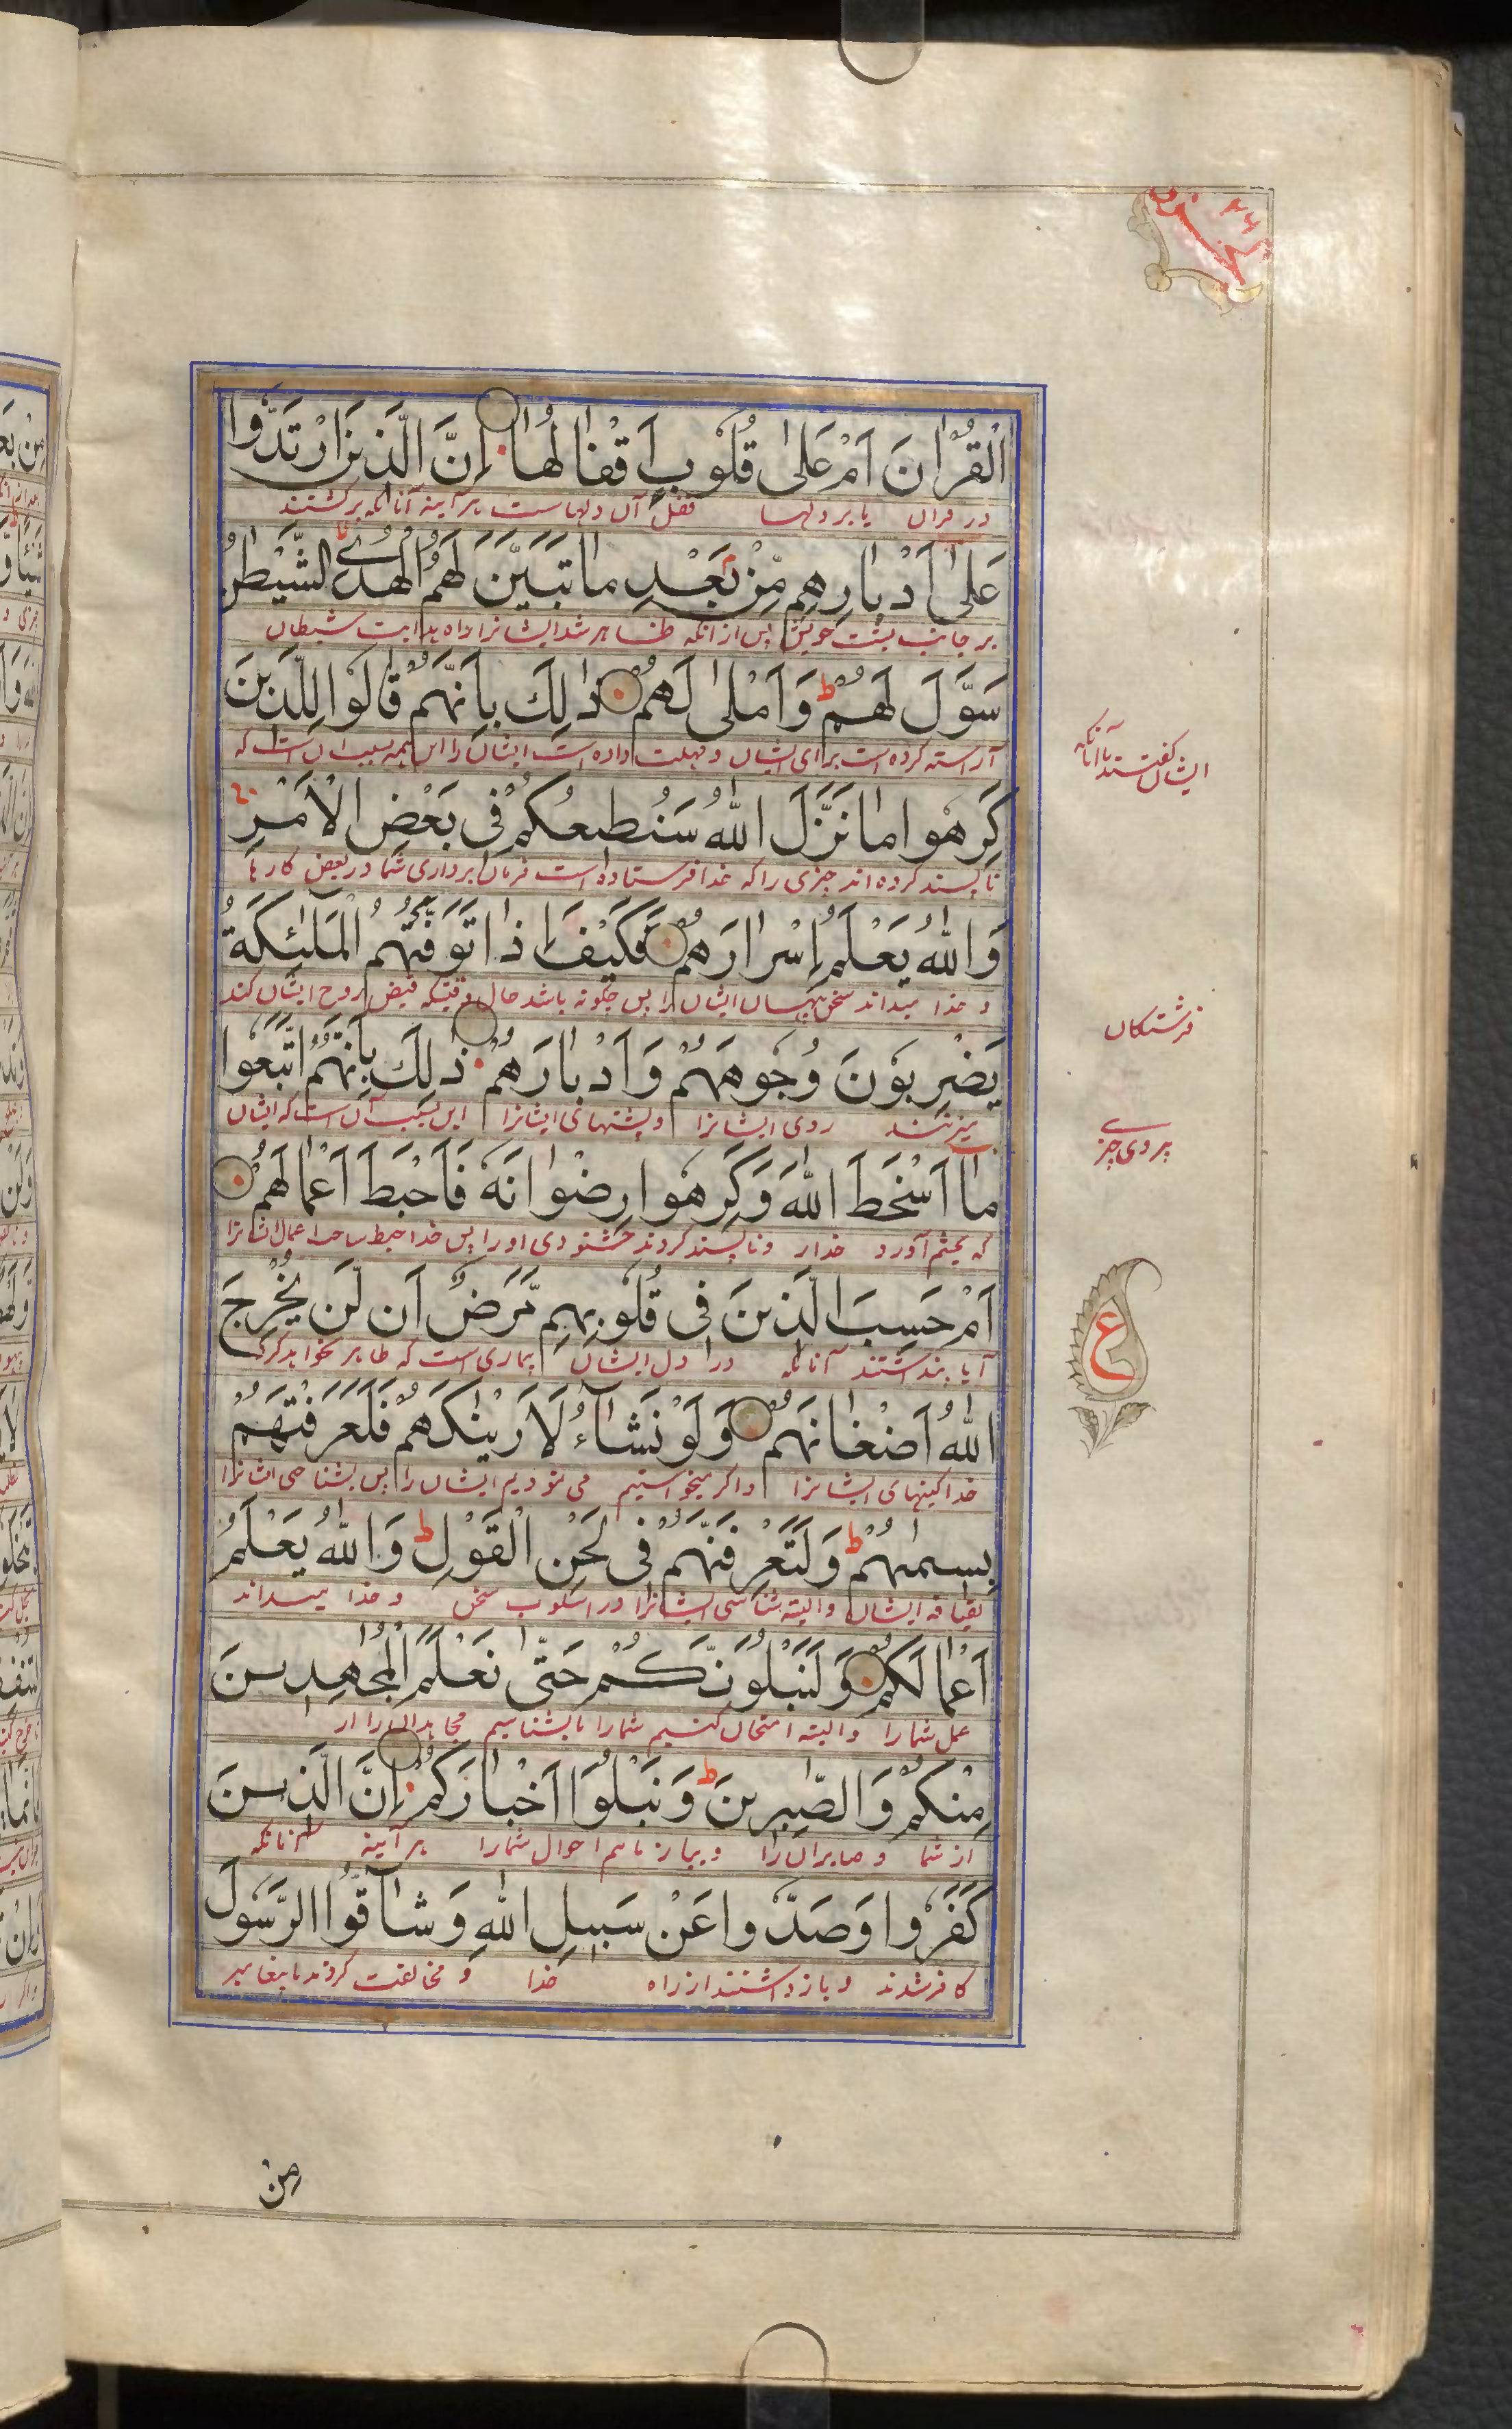 الْقُرْاٰنَ اَمْ عَلٰی قُلُوْبٍ اَقْفٰالُهٰا اِنَّ الَّذٖنَ ارْتَدُّوْا
در قران یا بر دلها قفل آن دلهاست هرآینه آنانکه برگشتند
عَلٰی اَدْبٰارِهِمْ مِّنْۢ بَعْدِ مٰا تَبَیَّنَ لَهُمُ الْهُدَی ۙ الشَّیْطٰنُ
بر جانب پشت خویش پس ازانکه ظاهر شد ایشانرا راه هدایت شیطان
سَوَّلَ لَهُمْ ؕ وَاَمْلٰی لَهُمْ ذٰلِكَ بِاَنَّهُمْ قٰالُوْا لِلَّذٖینَ
آراسته کرده است برای ایشان و مهلت داده است ایشان را این همه بسبب آن است که
ایشان گفتند باآنانکه
كَرِهُوْا مٰا نَزَّلَ اللّٰهُ سَنُطٖیعُكُمْ فٖی بَعْضِ الْاَمْرِ
ناپسند کرده اند چیزی را که خدا فرستاده است فرمان برداری شما در بعض کارها
وَاللّٰهُ یَعْلَمُ اِسْرٰارَهُمْ فَكَیْفَ اِذٰا تَوَفَّتْهُمُ الْمَلٰٓئِكَةُ
و خدا میداند سخن پنهان ایشان را پس چگونه باشد حال وقتیکه قبض روح ایشان کند
فرشتگان
یَضْرِبُوْنَ وُجُوْهَهُمْ وَاَدْبٰارَهُمْ ذٰلِكَ بِاَنَّهُمُ اتَّبَعُوْا
میزنند روی ایشانرا و پشتهای ایشانرا این بسبب آن است که ایشان
پیروی چیزے
مٰا اَسْخَطَ اللّٰهَ وَكَرِهُوْا رِضْوٰانَهٗ فَاَحْبَطَ اَعْمٰالَهُمْ
که بخشم آورد خدارا و ناپسند کردند خشنودی اورا پس خدا حبط ساخت اعمال ایشانرا
اَمْ حَسِبَ الَّذٖینَ فٖی قُلُوْبِهِمْ مَّرَضٌ اَنْ لَّنْ یُّخْرِجَ
آیا پنداشتند آنانکه در دل ایشان بیماری است که ظاهر نخواهد کرد
ع
اللّٰهُ اَضْغٰانَهُمْ وَلَوْ نَشٰٓاءُ لَاَرَیْنٰكَهُمْ فَلَعَرَفْتَهُمْ
خدا کینهای ایشانرا و اگر میخواستیم می نمودیم ایشان را پس بشناختی ایشانرا
بِسٖیمٰهُمْ ؕ وَلَتَعْرِفَنَّهُمْ فٖی لَحْنِ الْقَوْلِ ؕ وَاللّٰهُ یَعْلَمُ
بقیافه ایشان و البته شناسی ایشانرا در اسلوب سخن و خدا میداند
اَعْمٰالَكُمْ وَلَنَبْلُوَنَّكُمْ حَتّٰی نَعْلَمَ الْمُجٰهِدٖینَ
عمل شمارا و البته امتحان کنیم شمارا تا بشناسیم مجاهدان را از
مِنْكُمْ وَالصّٰبِرٖینَ ؕ وَنَبْلُوَا اَخْبٰارَكُمْ اِنَّ الَّذٖینَ
از شما و صابران را و بیازماییم احوال شمارا هرآینه آنانکه
كَفَرُوْا وَصَدُّوْا عَنْ سَبٖیلِ اللّٰهِ وَشٰٓاقُّوا الرَّسُوْلَ
کافر شدند و بازداشتند از راه خدا و مخالفت کردند با پیغامبر
مِنْ